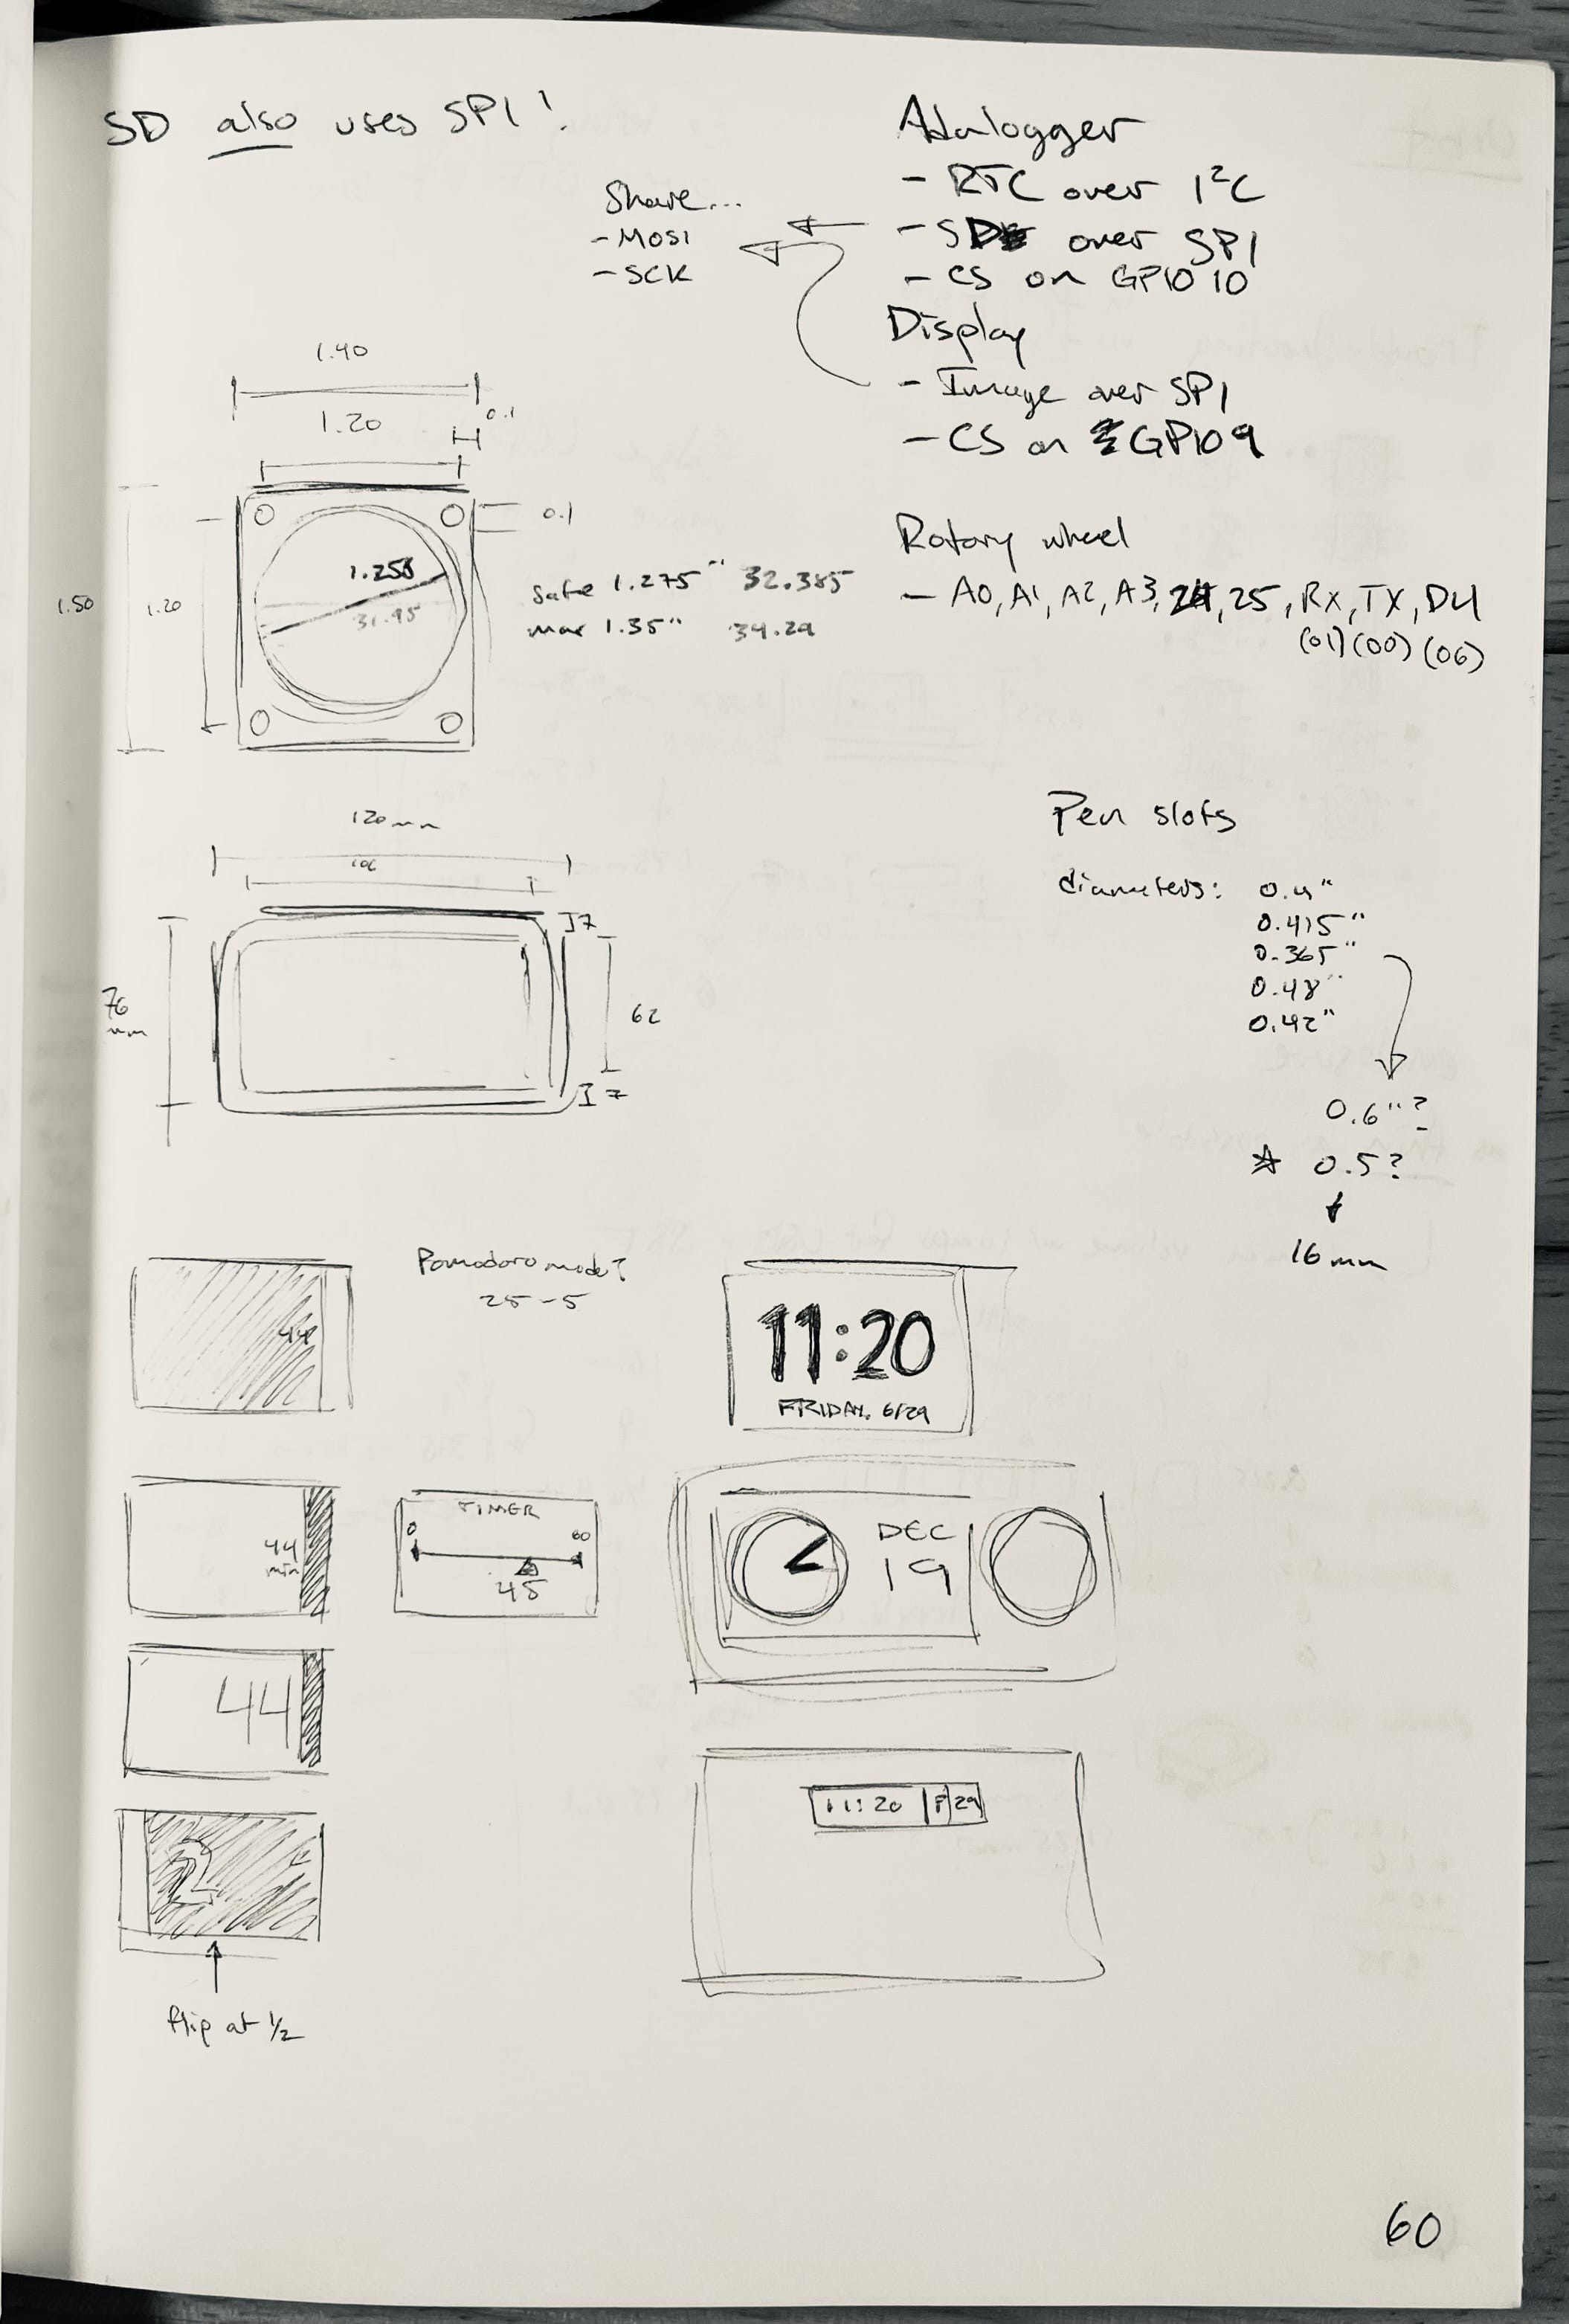 SD also uses SPI!
Share...
- MOSI
- SCK
Adalogger
- RTC over I²C
- SD over SPI
- CS on GPIO 10
Display
- Image over SPI
- CS on GPIO 9
Rotary wheel
- A0, A1, A2, A3, 24, 25, RX, TX, D4
(01) (00) (06)
1.40
1.20
0.1
0.1
1.50
1.20
1.258
31.95
safe 1.275" 32.385
max 1.35" 34.29
120mm
106
7
76
mm
62
7
Pen slots
diameters: 0.4"
0.415"
0.365"
0.48"
0.42"
0.6"?
0.5?
16mm
44
Pomodoro mode?
25-5
11:20
FRIDAY, 6/29
44
min
TIMER
0
60
45
DEC
19
44
11:20 F 29
2
flip at ½
60